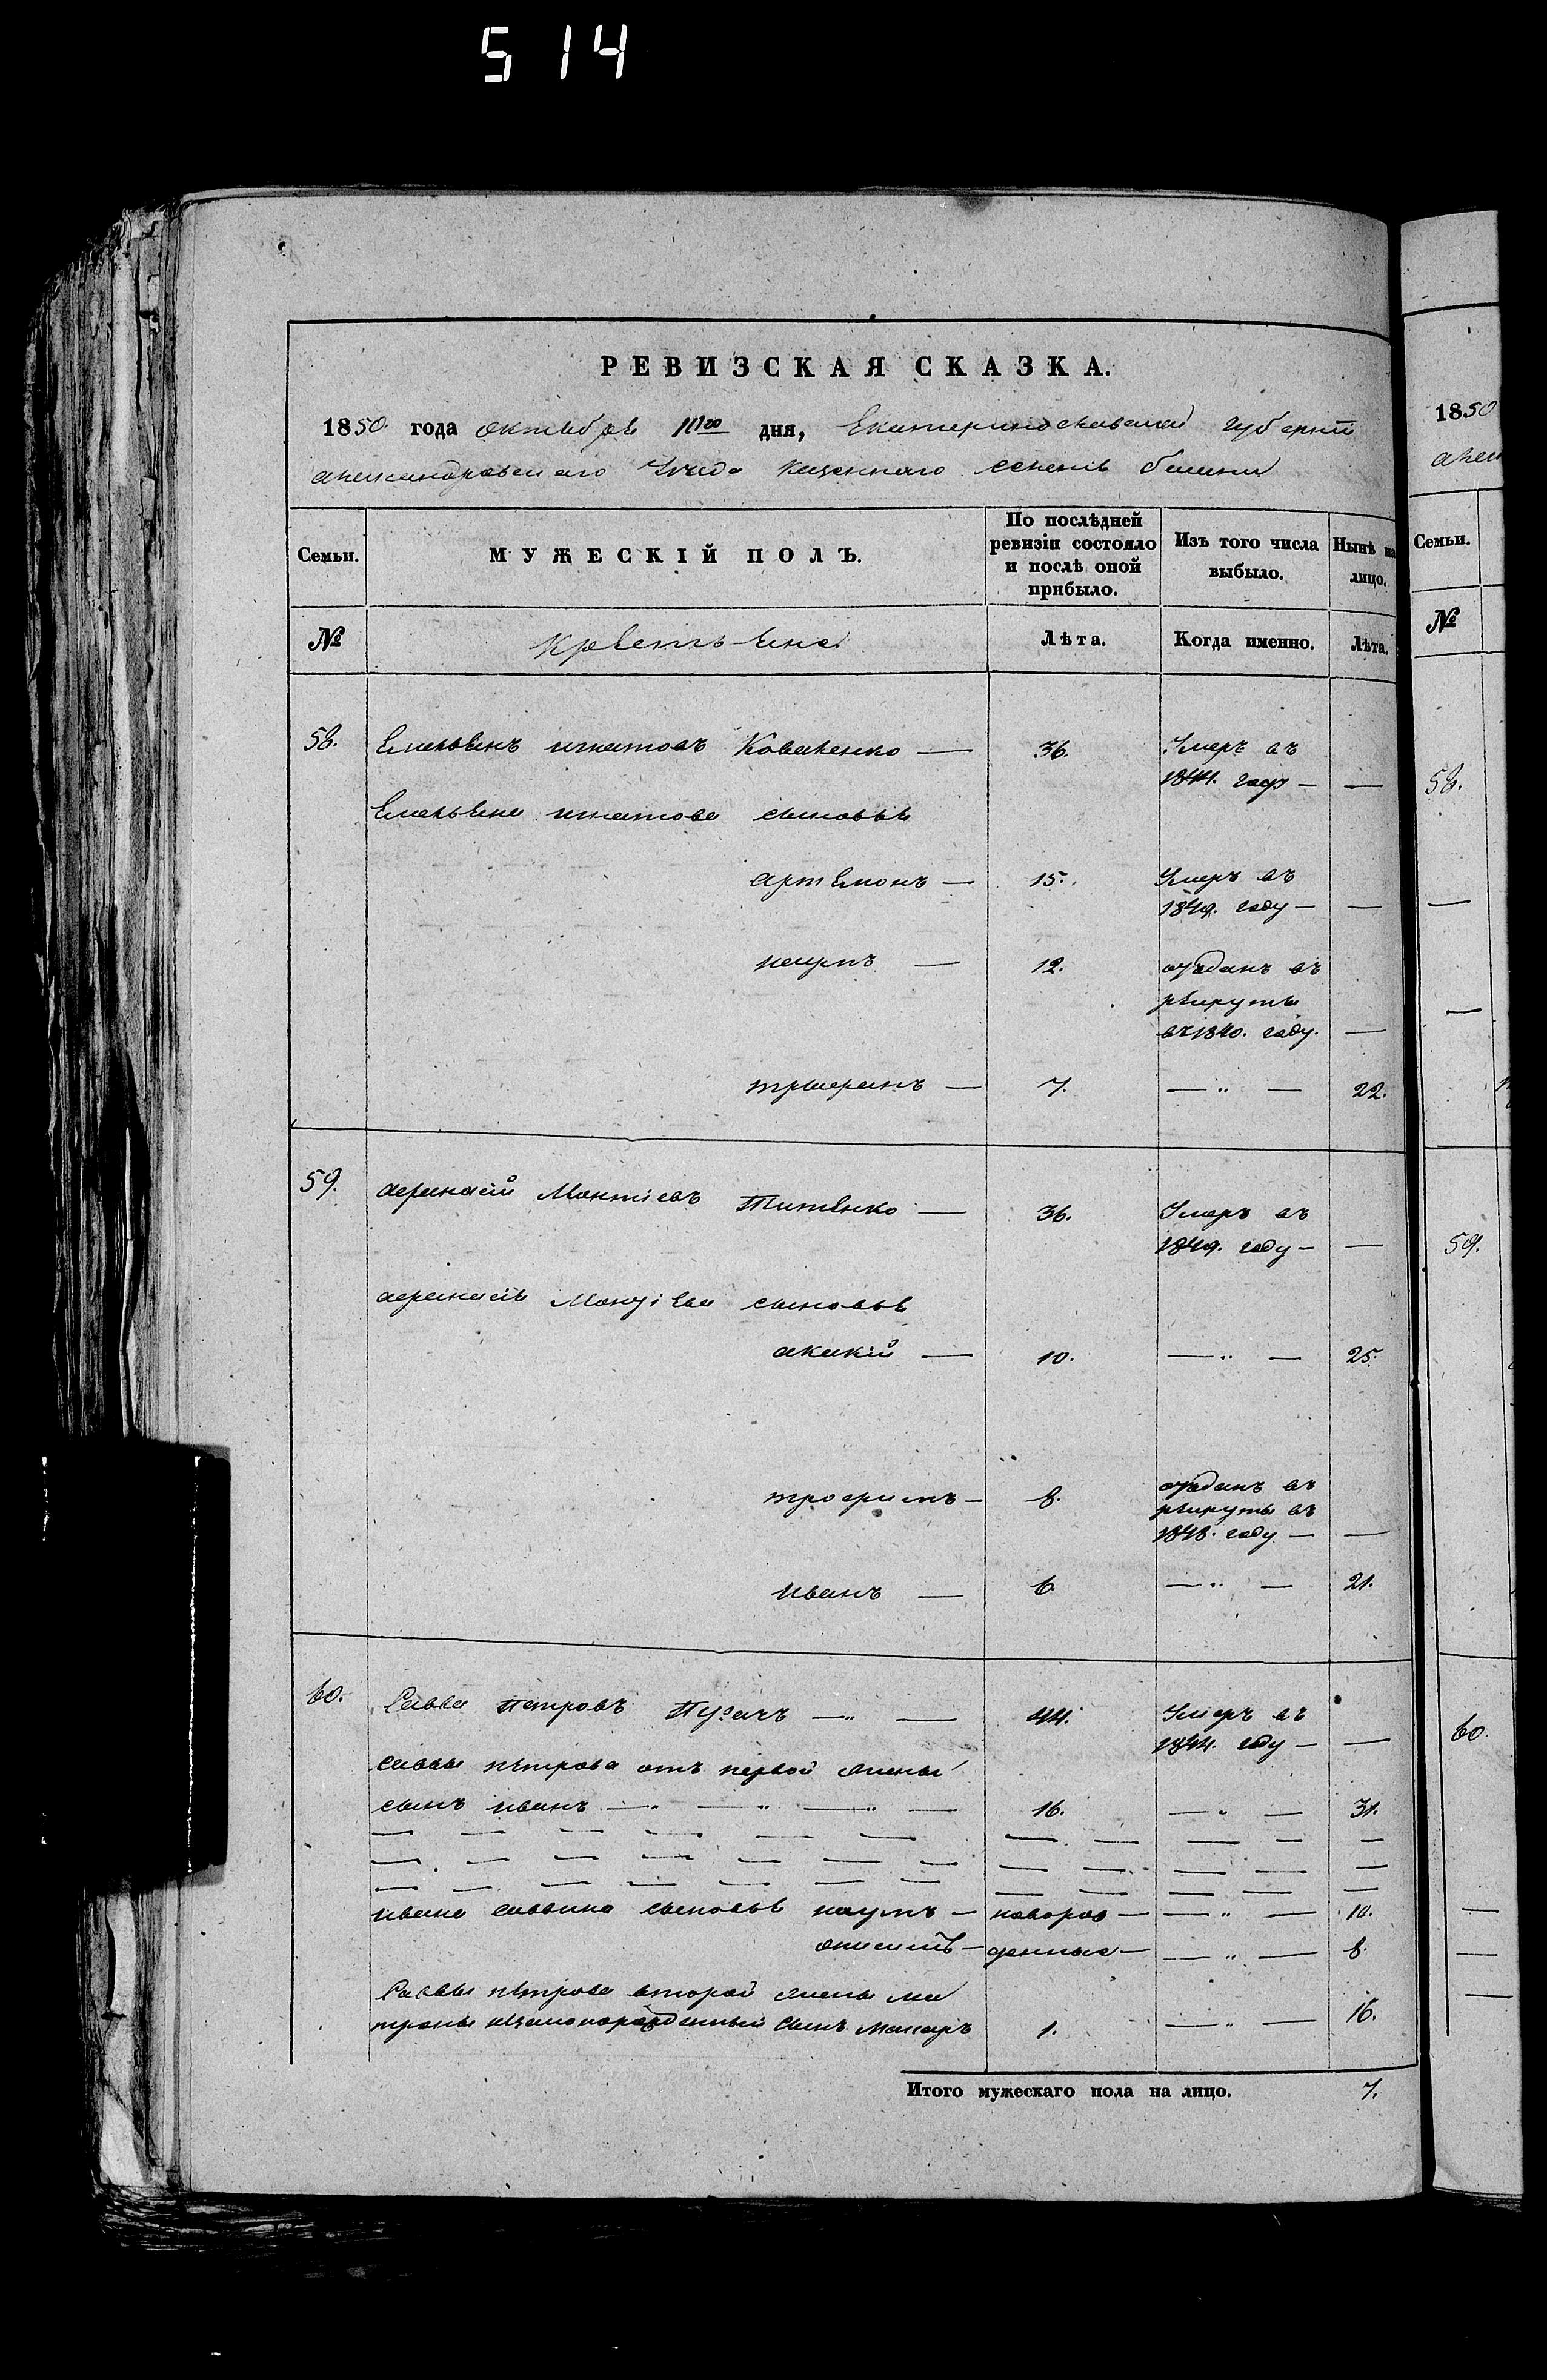 514
РЕВИЗСКАЯ СКАЗКА.
1850. года октября дня, Екатеринославской губерніи
александровскаго уезда казеннаго селенія
Семьи.
МУЖЕСКІЙ ПОЛЪ.
По послѣдней ревизіи состояло и послѣ оной прибыло.
Изъ того числа выбыло.
Нынѣ на лицо.
№
крестьяне
Лѣта.
Когда именно.
Лѣта.
58. Емельянъ игнатовъ Коваленко — 36. Умеръ въ
1841. году — —
Емельяна игнатова сыновья
артемонъ — 15. Умеръ въ
1849. году — —
наумъ — 12. отданъ въ
рекруты
въ 1840. году. —
трифанъ — 7. — „ — 22.
59. афанасій Титенко — 36. Умеръ въ
1849. году — —
афанасія сыновья
акакій — 10. — „ — 25.
трофимъ — 8. отданъ въ
рекруты въ
1848. году — —
иванъ — 6. — „ — 21.
60. Савва петровъ Пугачъ — „ — 44. Умеръ въ
1844. году — —
саввы петрова отъ первой жены
сынъ иванъ — „ — „ — „ — 16. — „ — 31.
ивана саввина сыновья наумъ — новорож — „ — 10.
онисимъ — денные — — „ — 8.
Саввы петрова второй жены ма
троны сынъ макаръ 1. — „ — 16.
Итого мужескаго пола на лицо. 7.
1850
Семьи.
№
58.
59.
60.